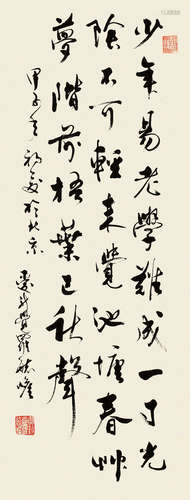 少年易老學難成一寸光
陰不可輕未覺池塘春艸
夢階前梧葉已秋聲
甲子夏於北京
愛新覺羅毓嶦